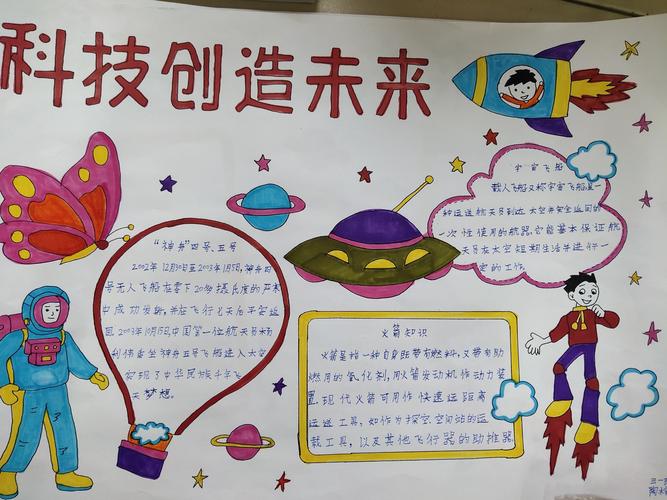 科技创造未来
宇宙飞船
载人飞船又称宇宙飞船是一
种运送航天员到达太空并安全返回的
一次性使用的航器。它能基本保证航
天员在太空短期生活并进行一
定的工作。
“神舟”四号、五号
2002年12月30日至2003年1月5日,神舟四
号无人飞船在零下20多摄氏度的严寒
中成功发射,并在飞行七天后平安返回
2003年10月15日,中国第一位航天员杨
利伟乘坐神舟五号飞船进入太空
实现了中华民族千年飞
天梦想。
火箭知识
火箭是指一种自身既带有燃料,又带有助
燃用的氧化剂,用火箭发动机作动力装
置,现代火箭可用作快速远距离
运送工具,如作为探空、空间站的运
载工具,以及其他飞行器的助推器
三一